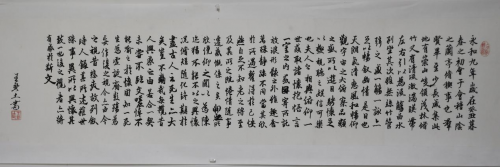 永和九年歲在癸丑暮
春之初會于會稽山陰
之蘭亭脩禊事也羣
賢畢至少長咸集此
地有崇山峻領茂林脩
竹又有清流激湍映帶
左右引以為流觴曲水
列坐其次雖無絲竹管
弦之盛一觴一詠亦
足以暢敘幽情是日也
天朗氣清惠風和暢仰
觀宇宙之大俯察品類
之盛所以遊目騁懷足
以極視聽之娛信可樂
也夫人之相與俯仰一
世或取諸懷抱悟言
一室之內或因寄所託
放浪形骸之外雖趣舍
萬殊靜躁不同當其欣
於所遇蹔得於己快
然自足不知老之將至
及其所之既惓情隨事
遷感慨係之矣向之所
欣俛仰之間以為陳
迹猶不能不以之興懷
況脩短隨化終期於
盡古人云死生亦大
矣豈不痛哉每攬昔
人興感之由若合一契
未嘗不臨文嗟悼不
能喻之於懷固知一死
生為虛誕齊彭殤為
妄作後之視今亦由今
之視昔悲夫故列敘
時人錄其所述雖世
殊事異所以興懷其
致一也後之攬者亦將
有感於斯文